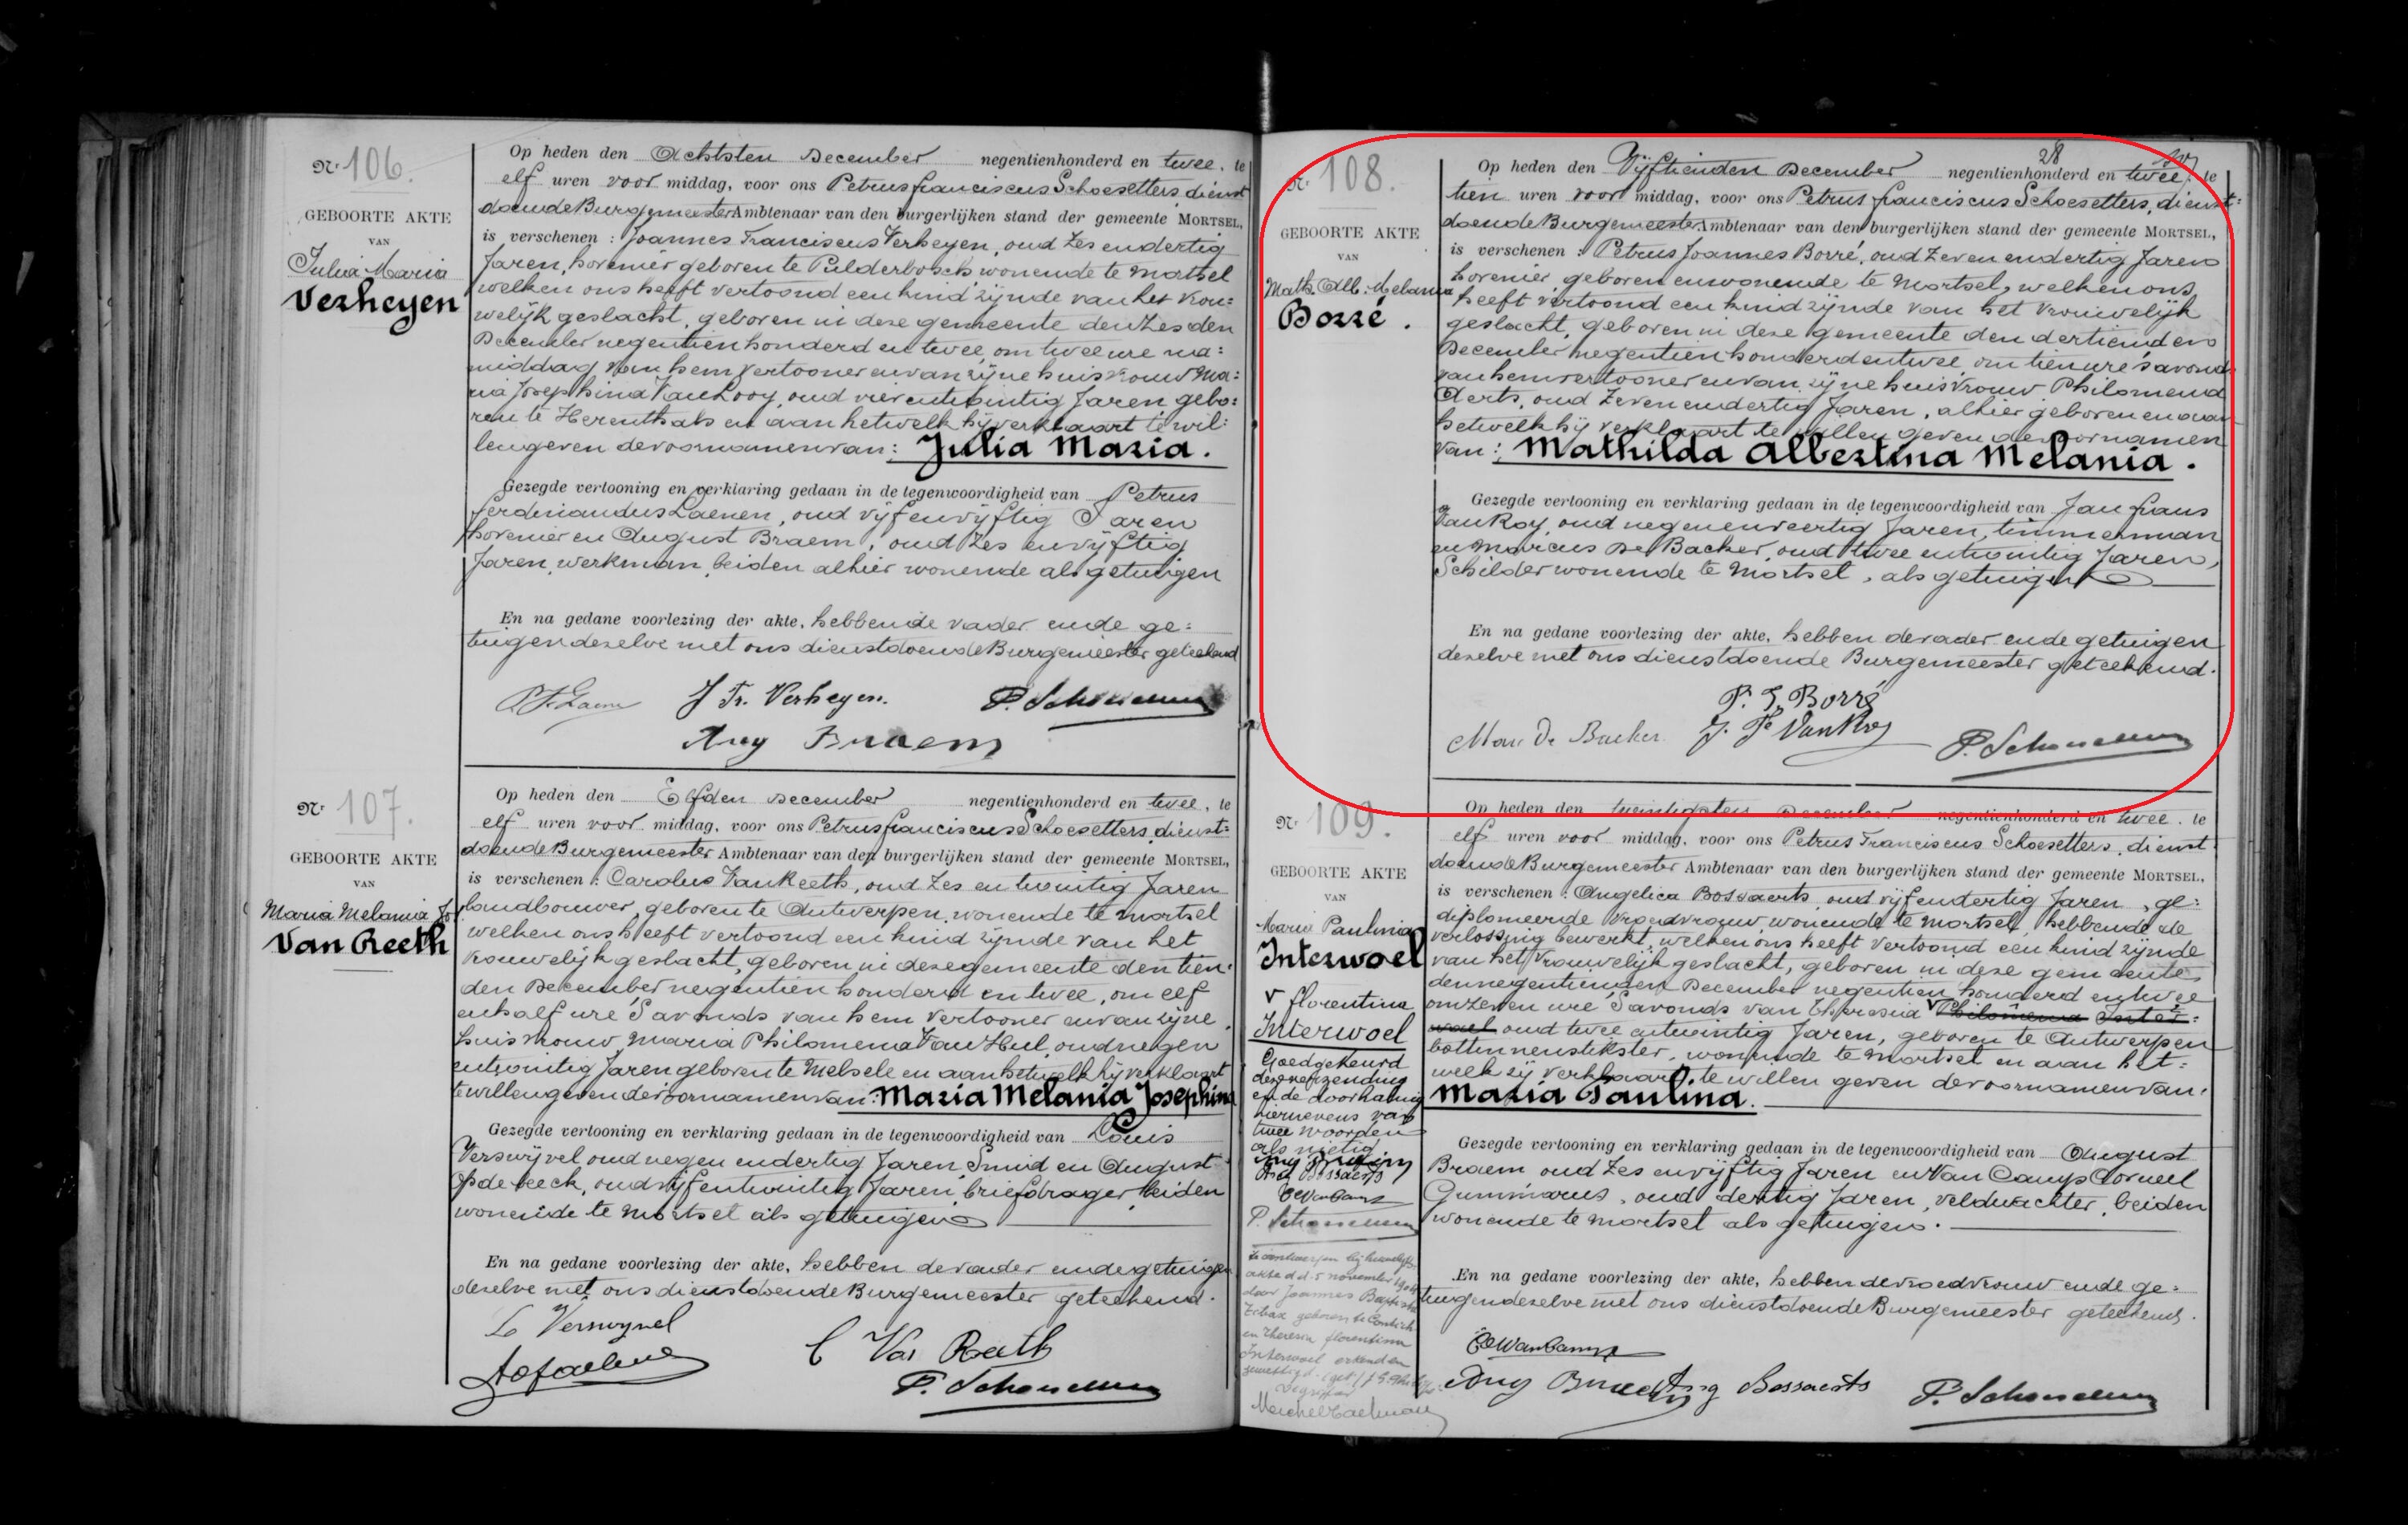 Nr 106.
GEBOORTE AKTE
VAN
Julia Maria
Verheyen
Op heden den Achtsten December negentienhonderd en twee, te
elf uren voor middag, voor ons Petrus franciscus Schoesetters, dienst
doende Burgemeester Ambtenaar van den burgerlijken stand der gemeente MORTSEL,
is verschenen : Joannes Franciscus Verheyen, oud Zes en dertig
Jaren, hovenier geboren te Pulderbosch wonende te Mortsel
welken ons heeft vertoond een kind zijnde van het vrou=
welijk geslacht, geboren in deze gemeente den Zesden
December negentien honderd en twee, om twee ure na=
middag van hem vertooner en van zijne huisvrouw Ma=
ria Josephina Van Looy, oud vier en twintig Jaren gebo=
ren te Herenthals en aan hetwelk hij verklaart te wil=
len geven de voornamen van: Julia Maria.
Gezegde vertooning en verklaring gedaan in de tegenwoordigheid van Petrus
Ferdinandus Laenen, oud vijf en vijftig Jaren
hovenier en August Braem, oud Zes en vijftig
Jaren, werkman, beiden alhier wonende als getuigen
En na gedane voorlezing der akte, hebben de vader en de ge=
tuigen dezelve met ons dienstdoende Burgemeester geteekend
J Fr. Verheyen.
Aug Braem
Nr 107.
GEBOORTE AKTE
VAN
Maria Melania Jos
Van Reeth
Op heden den Elfden December negentienhonderd en twee, te
elf uren voor middag, voor ons Petrus franciscus Schoesetters, dienst=
doende Burgemeester Ambtenaar van den burgerlijken stand der gemeente MORTSEL,
is verschenen : Carolus Van Reeth, oud Zes en twintig Jaren
landbouwer, geboren te Antwerpen, wonende te Mortsel
welken ons heeft vertoond een kind zijnde van het
vrouwelijk geslacht, geboren in deze gemeente den tien=
den December negentien honderd en twee, om elf
en half ure 'S avonds van hem vertooner en van zijne
huisvrouw Maria Philomena Van Hul, oud negen
en twintig Jaren geboren te Melsele en aan hetwelk hij verklaart
te willen geven de voornamen van: Maria Melania Josephina
Gezegde vertooning en verklaring gedaan in de tegenwoordigheid van Louis
Verswijvel oud negen en dertig Jaren Smid en August
Op de Beeck, oud vijf en twintig Jaren, briefdrager, beiden
wonende te Mortsel als getuigen
En na gedane voorlezing der akte, hebben de vader en de getuigen
dezelve met ons dienstdoende Burgemeester geteekend.
L Verswyvel
C Van Reeth
28
Nr 108.
GEBOORTE AKTE
VAN
Math. Alb. Melania
Borré.
Op heden den Vijftienden December negentienhonderd en twee, te
tien uren voor middag, voor ons Petrus franciscus Schoesetters, dienst=
doende Burgemeester Ambtenaar van den burgerlijken stand der gemeente MORTSEL,
is verschenen : Petrus Joannes Borré, oud Zeven en dertig Jaren
hovenier, geboren en wonende te Mortsel, welken ons
heeft vertoond een kind zijnde van het vrouwelijk
geslacht, geboren in deze gemeente den dertienden
December negentien honderd en twee, om tien ure 's avonds
van hem vertooner en van zijne huisvrouw Philomena
Aerts, oud Zeven en dertig Jaren, alhier geboren en aan
hetwelk hij verklaart te willen geven de voornamen
van: Mathilda Albertina Melania.
Gezegde vertooning en verklaring gedaan in de tegenwoordigheid van Jan frans
Van Roy, oud negen en veertig Jaren, timmerman
en Marcus De Backer, oud twee en twintig Jaren,
Schilder wonende te Mortsel, als getuigen
En na gedane voorlezing der akte, hebben de vader en de getuigen
dezelve met ons dienstdoende Burgemeester geteekend.
P. J. Borré
Marc De Backer J. F. Van Roy
Nr 109.
GEBOORTE AKTE
VAN
Maria Paulina
Interwoel
v florentina
Interwoel
Goedgekeurd
deze verzending
en de doorhaling
hiernevens van
twee woorden
als nietig
Aug Braem
Ang Bossaerts
Op heden den twintigsten December negentienhonderd en twee, te
elf uren voor middag, voor ons Petrus Franciscus Schoesetters, dienst
doende Burgemeester Ambtenaar van den burgerlijken stand der gemeente MORTSEL,
is verschenen : Angelica Bossaerts, oud vijf en dertig Jaren, ge=
diplomeerde Vroedvrouw, wonende te Mortsel, hebbende de
verlossing bewerkt, welken ons heeft vertoond een kind zijnde
van het Vrouwelijk geslacht, geboren in deze gemeente,
den negentienden December negentien honderd en twee
om zeven ure 'Savonds van Theresia v Philomena Inter=
woel oud twee en twintig Jaren, geboren te Antwerpen
bottinnenstikster, wonende te Mortsel en aan het=
welk zij verklaart te willen geven de voornamen van:
Maria Paulina.
Gezegde vertooning en verklaring gedaan in de tegenwoordigheid van August
Braem oud Zes en vijftig Jaren en Van Camp Corneel
Gummarus, oud dertig Jaren, veldwachter, beiden
wonende te Mortsel als getuigen.
En na gedane voorlezing der akte, hebben de vroedvrouw en de ge=
tuigen dezelve met ons dienstdoende Burgemeester geteekend.
CG Van Camp
Aug Braem Ang Bossaerts